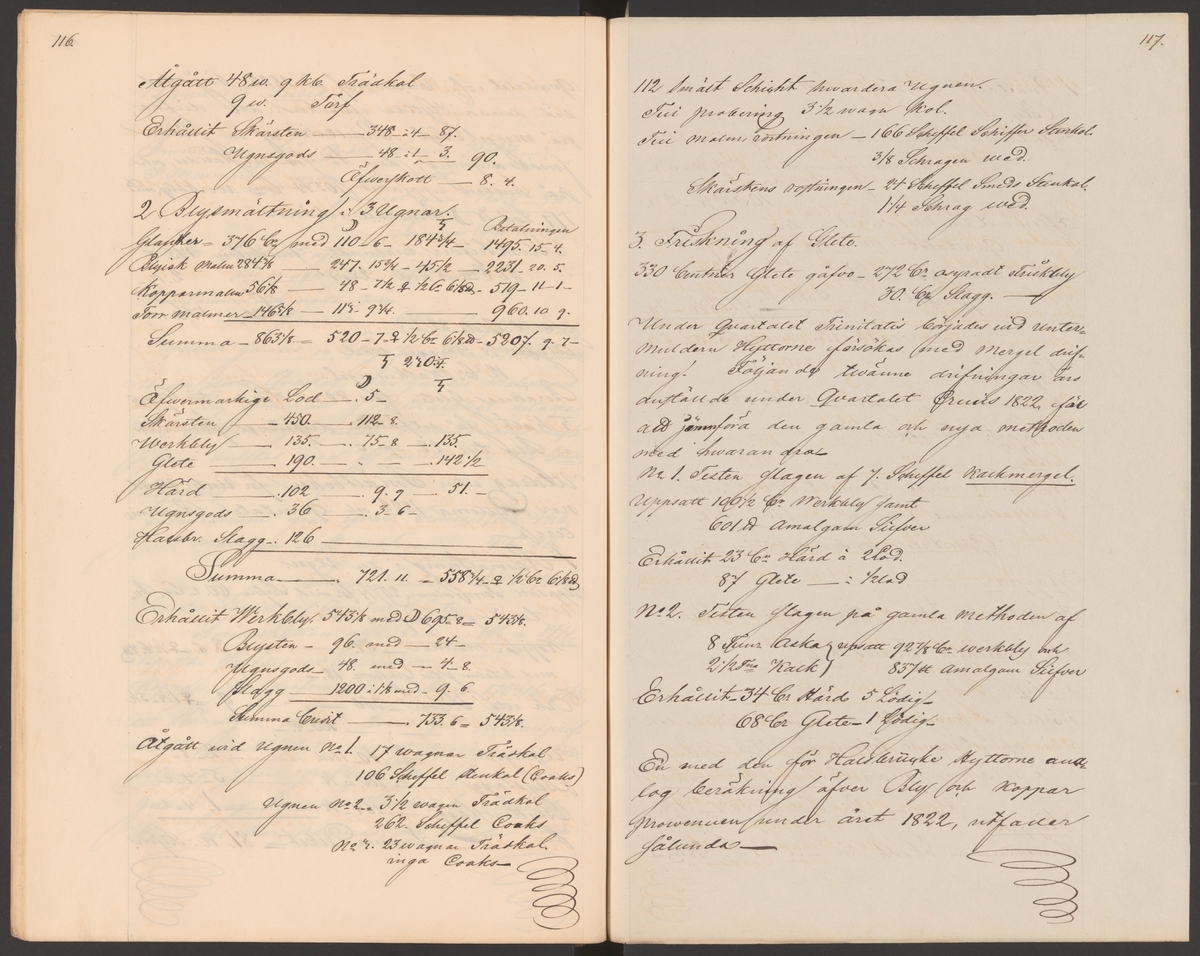 116
Åtgått 48 w. 9 kb. Trädkol
9 w. Torf
Erhållit Skärsten — 348 : 4 87.
Ugnsgods — 48 : 1 3. 90.
Äfwerskott — 8. 4.
2 Blysmältning i 3 Ugnar.
Betalningen
Glantzer = 376 Ctr med 110 - 6 - 184 3/4 - 1495. 15 - 4.
Blyisk malm 284 3/8 — 247. 15 3/4 - 45 1/2 - 2231. 20. 5.
Kopparmalm 56 1/8 — 48 - 7 1/2 ♀ 1/2 Ctr 6 1/8 ℔ - 519 - 11 - 1 -
Torr malmer 146 5/8 — 114 - 9 3/4 — 960. 10 9.
Summa - 863 1/8 = 520 - 7 - ♀ 1/2 Ctr 6 1/8 ℔ - 5207. 9. 7 -
♄ 230 1/4.
Äfwermarkige Lod — . 5 -
Skärsten — 450. — 112 - 8.
Werkbly — 135. — 75 - 8 — 135.
Glete — 190. — . — — . 142 1/2
Härd — . 102 — 9. 9 — 51. -
Ugnsgods — . 36 — . 3 - 6 -
Halsbr. Slagg . 126 —
Summa — . 721. 11. - 558 3/4 - ♀ 1/2 Ctr 6 1/8 ℔
Erhållit Werkbly. 543 1/8 med ☽ 695 - 8 = 543 1/8.
Blysten - 96. med — 24 -
Ugnsgods - 48 med — 4 - 8.
Slagg — 1200 : 1/8 med - 9. 6.
Summa Credit — . 733. 6 = 543 1/8.
Åtgått wid Ugnen No 1. 17 wagnar Trädkol
106 Scheffel Stenkol (Coaks)
Ugnen No 2 - 3 1/2 wagn Trädkol
262. Scheffel Coaks
23 wagnar Trädkol.
inga Coaks —
117.
112 Smält Schicht hwardera Ugnen.
Till probering 3 1/2 wagn kol.
Till malms röstningen — 166 Scheffel Schiffer Stenkol.
3/8 Schragen wed.
Skärstens rostningen - 24 Scheffel Smeds Stenkol.
1 1/4 Schrag wed.
3. Friskning af Glete.
330 Centner Glete gåfvo - 272 Ctr Friskbly
30. Ctr Slagg. —
Under Qvartalet Trinitatis börjades wid unter-
muldern Hyttorne försökas med Mergel drif-
ning. Följande twänne drifningar äro
anstälde under Qvartalet Crucis 1822, för
att jämnföra den gamla och nya methoden
med hwarandra
No 1. Testen slagen af 7. Scheffel Kalkmergel.
Uppsatt 190 1/2 Ctr Werkbly samt
601 ℔ Amalgam Silfver
Erhållit 23 Ctr Härd à 2 Lod.
87 Glete — : 1/2 lod
No 2. Testen slagen på gamla methoden af
8 Tunr Aska } upsatt 92 7/8 Ctr werkbly och
2 1/2 Tnr Kalk } 837 ℔ Amalgam Silfver
Erhållit - 34 Ctr Härd 5 Lödig -
68 Ctr Glete - 1 Lödig -
En med den för Halsbrücke Hyttorne ana-
log beräkning äfver Bly och Koppar
prowenuen under året 1822, utfaller
sålunda —